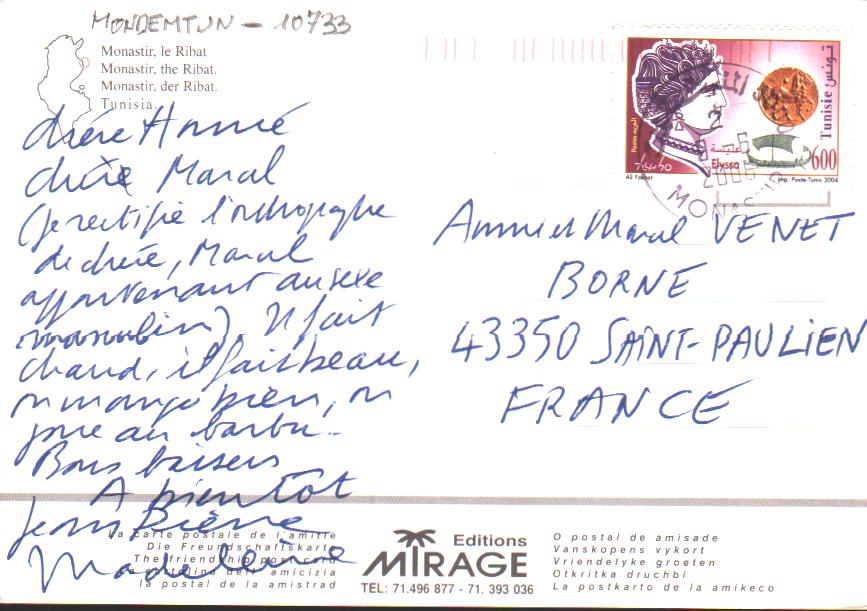 MONDEMTUN - 10733
Monastir, le Ribat
Monastir, the Ribat.
Monastir, der Ribat.
Tunisia.
chère Annie
chère Marcel
(je rectifie l'orthographe
de chère, Marcel
appartenant au sexe
masculin). Il fait
chaud, il fait beau,
on mange bien, on
joue au barbu.
Bons baisers
A bientôt
Jean Pierre
Madeleine
تونس Tunisie
عليسة
Elyssa
600
Postes البريد
Ali Fakhet
Imp. Poste-Tunis 2004
2006
MONASTIR
Annie et Marcel VENET
BORNE
43350 SAINT-PAULIEN
FRANCE
La carte postale de l'amitié
Die Freundschaftskarte
The friendship postcard
La cartolina dell' amicizia
la postal de la amistrad
Editions
MIRAGE
TEL: 71.496 877 - 71. 393 036
O postal de amisade
Vanskopens vykort
Vriendelyke groeten
Otkritka druchbi
La postkarto de la amikeco